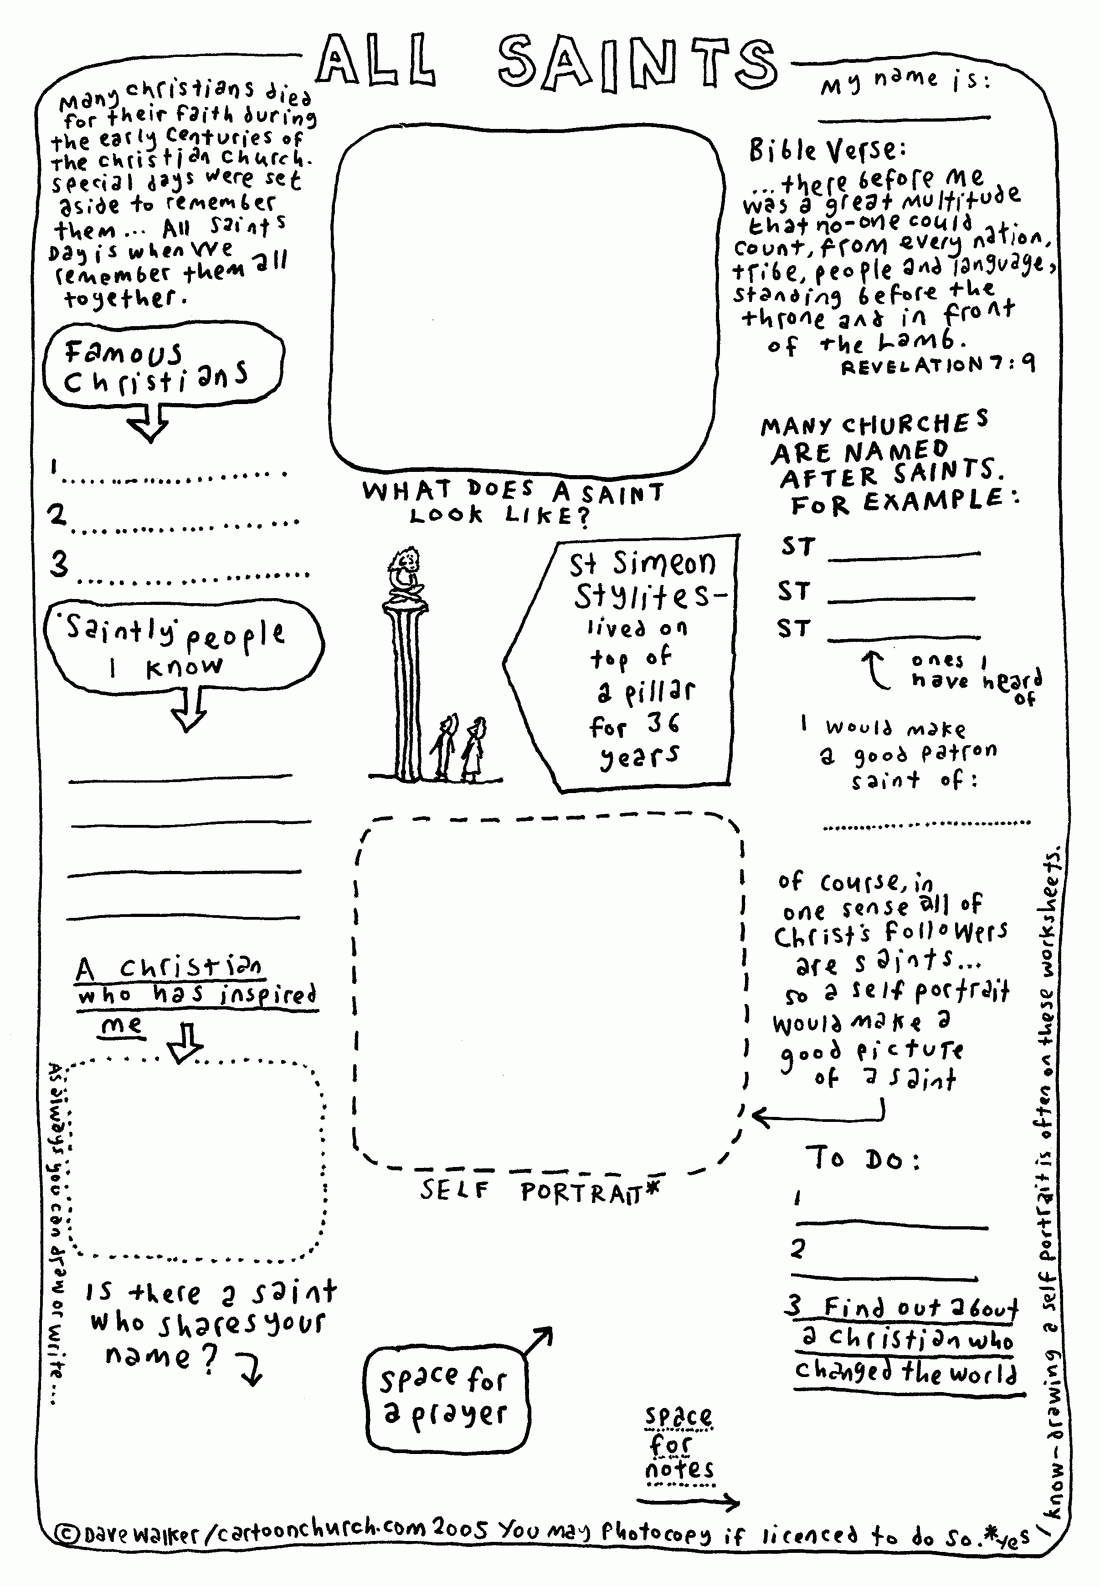 ALL SAINTS
Many Christians died
for their faith during
the early centuries of
the Christian Church.
special days were set
aside to remember
them... All Saints
Day is when we
remember them all
together.
Famous
Christians
1
2
3
'Saintly' people
I know
A Christian
who has inspired
me
As always you can draw or write...
Is there a saint
who shares your
name?
WHAT DOES A SAINT
LOOK LIKE?
St Simeon
Stylites-
lived on
top of
a pillar
for 36
years
SELF PORTRAIT*
space for
a prayer
space
for
notes
My name is:
Bible Verse:
...there before me
was a great multitude
that no-one could
count, from every nation,
tribe, people and language,
standing before the
throne and in front
of the Lamb.
REVELATION 7:9
MANY CHURCHES
ARE NAMED
AFTER SAINTS.
FOR EXAMPLE:
ST
ST
ST
ones I
have heard
of
I would make
a good patron
saint of:
of course, in
one sense all of
Christ's followers
are saints...
so a self portrait
would make a
good picture
of a saint
TO DO:
1
2
3 Find out about
a Christian who
changed the world
© Dave Walker/cartoonchurch.com 2005 You may photocopy if licenced to do so. *yes
I know - drawing a self portrait is often on these worksheets.